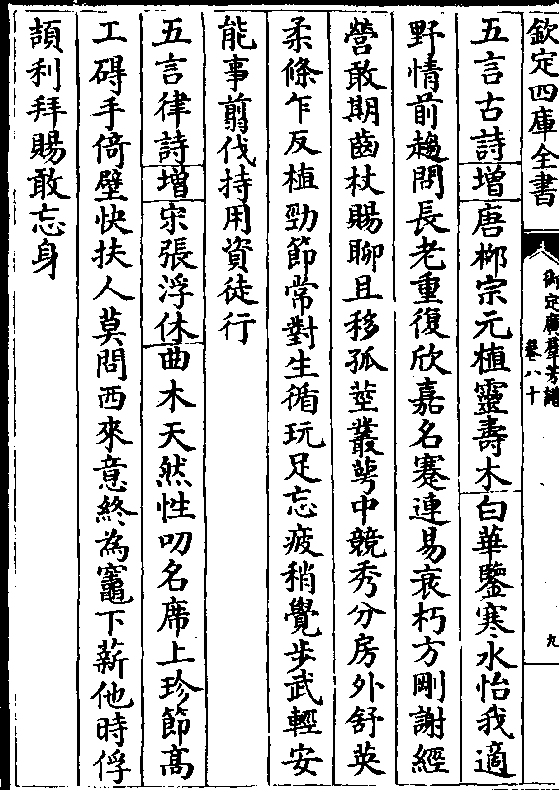 欽定四庫全書
御定廣羣芳譜
卷八十
九
五言古詩增唐柳宗元植靈壽木白華鑒寒水怡我適
野情前趨問長老重復欣嘉名蹇連易衰朽方剛謝經
營敢期齒杖賜聊且移孤莖叢萼中競秀分房外舒英
柔條乍反植勁節常對生循玩足忘疲稍覺步武輕安
能事翦伐持用資徒行
五言律詩增宋張浮休曲木天然性叨名席上珍節髙
工碍手倚壁快扶人莫問西來意終為竈下薪他時俘
頡利拜賜敢忘身